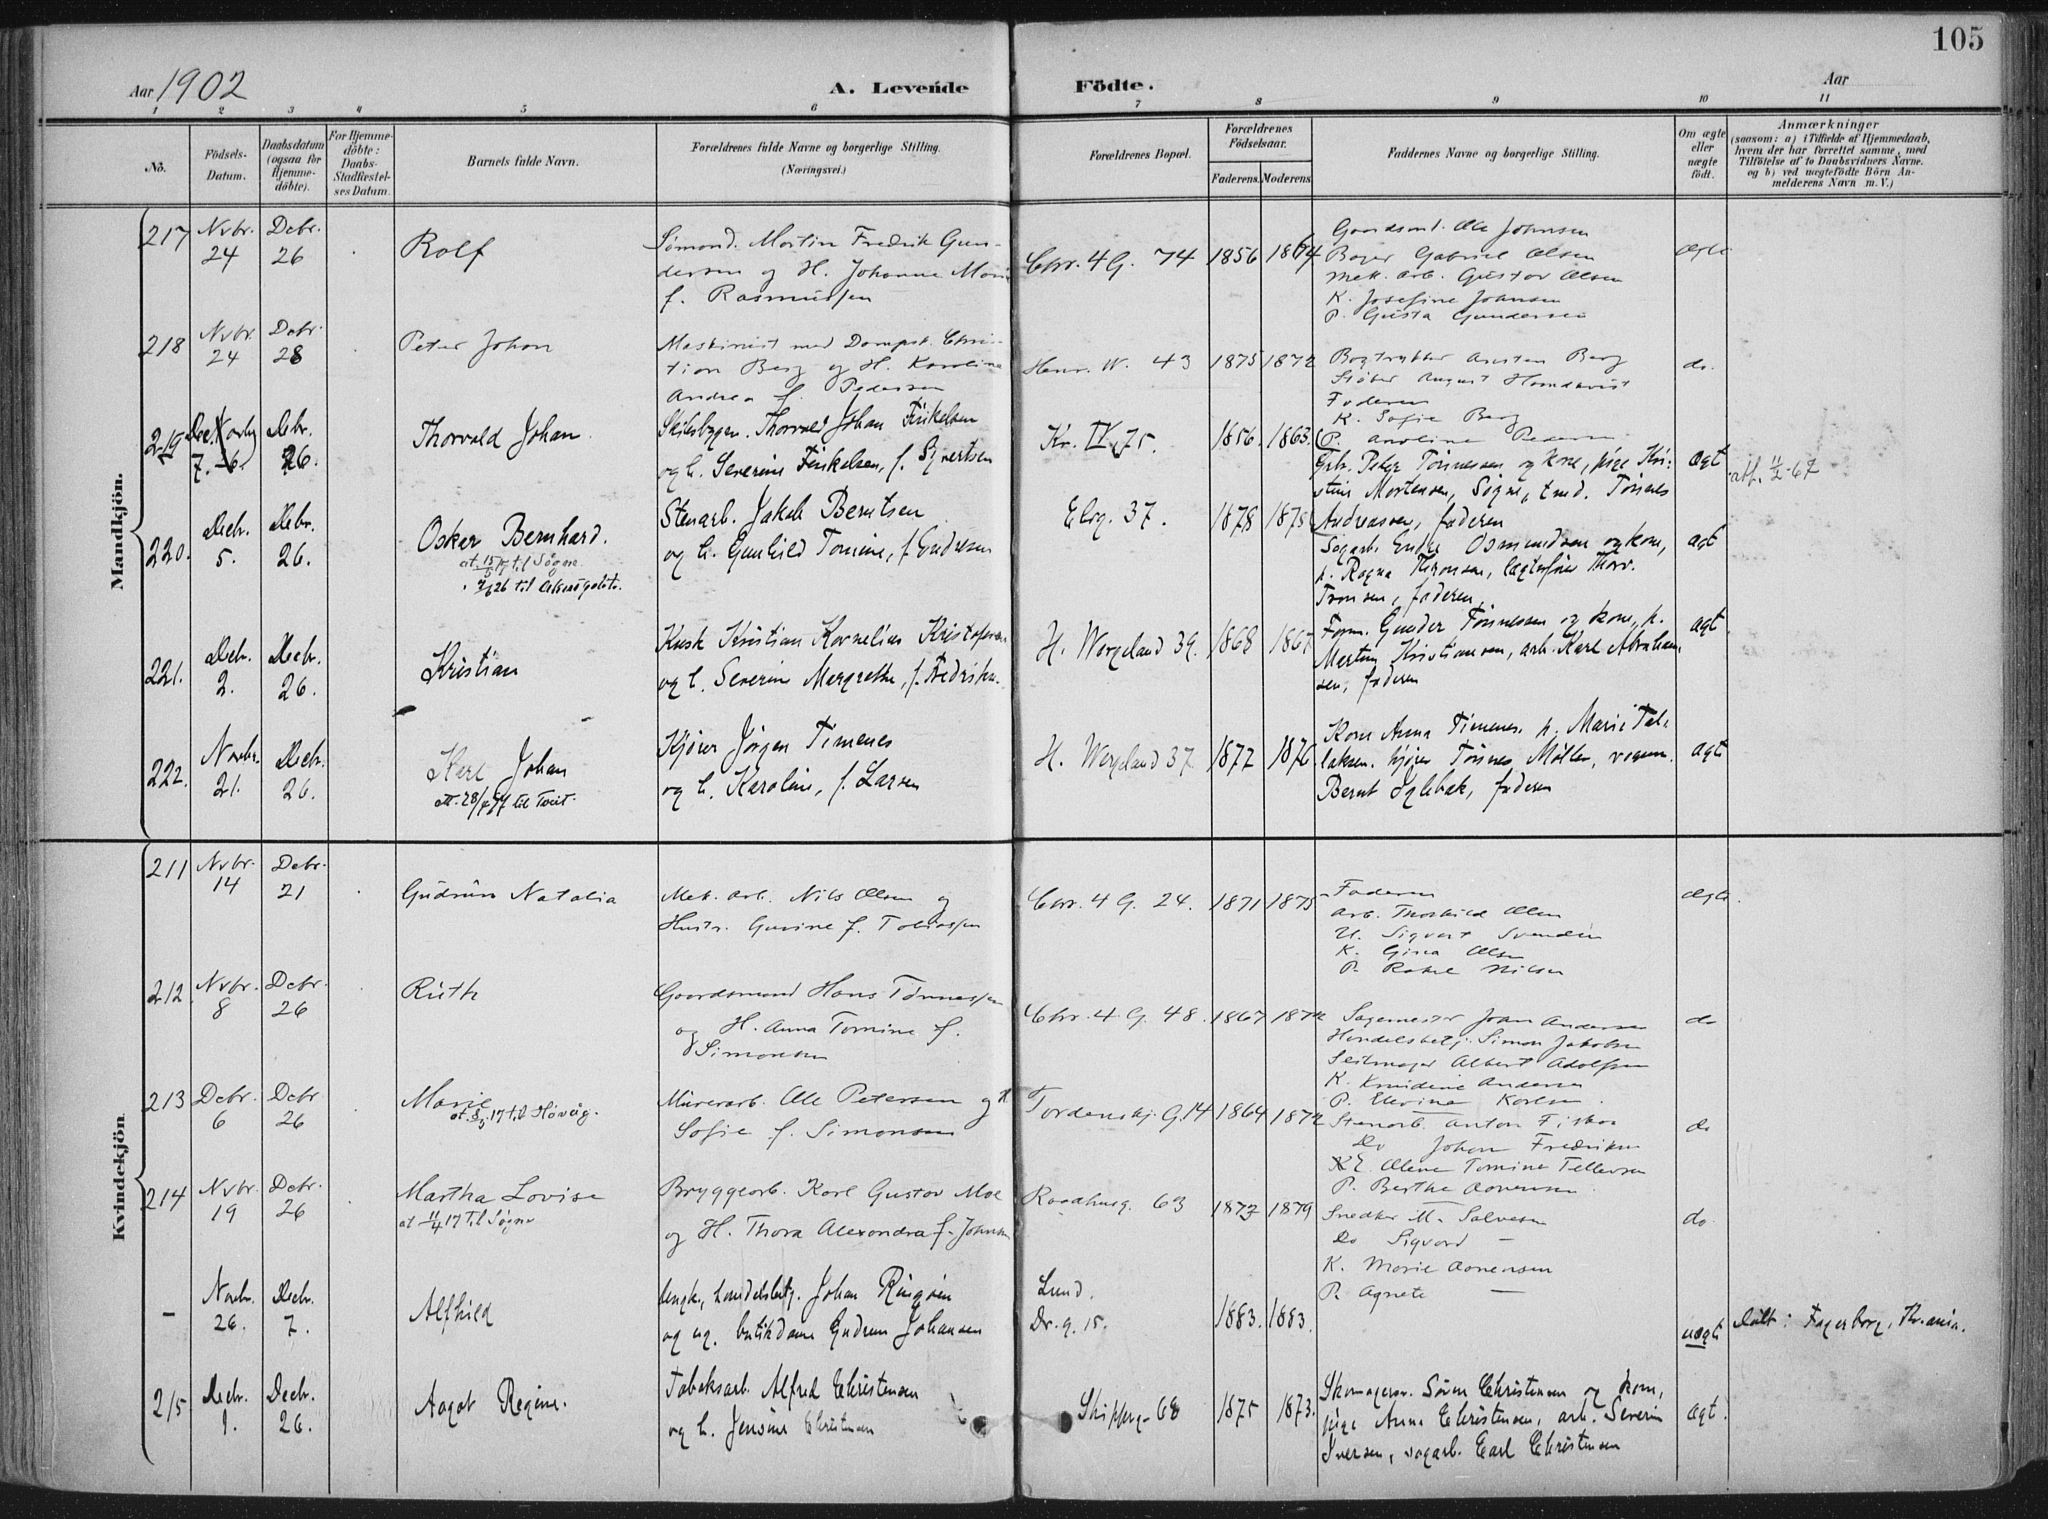 105
Aar 1902
A. Levende Födte.
Aar
1 2 3 4 5 6 7 8 9 10 11
No.
Födsels-Datum.
Daabsdatum (ogsaa for Hjemme-döbte).
For Hjemme-döbte: Daabs-Stadfæstel-ses Datum.
Barnets fulde Navn.
Forældrenes fulde Navne og borgerlige Stilling. (Næringsvei.)
Forældrenes Bopæl.
Forældrenes Födselsaar.
Faderens. Moderens.
Faddernes Navne og borgerlige Stilling.
Om ægte eller uægte födt.
Anmærkninger
(saasom: a) i Tilfælde af Hjemmedaab, hvem der har forrettet samme, med Tilföielse af to Daabsvidners Navne. og b) ved uægtefödte Börn An-melderens Navn m.V.)
Mandkjön.
217 Nvbr. 24 Debr. 26
Rolf
Sømand. Martin Fredrik Gun-
dersen og H. Johanne Marie
f. Rasmussen
Chr. 4 G. 74 1856 1864
Gaardsm. Ole Johnsen
Bager Gabriel Olsen
Mek. arb. Gustav Olsen
K. Josefine Johnsen
P. Gusta Gundersen
Ægte
218 Nvbr. 24 Debr. 28
Peter Johan
Maskinist med Dampsk. Chris-
tian Berg og H. Karoline
Andrea f. Pedersen
Henr. W. 43 1875 1872
Bogtrykker Berg
August
Faderen
K. Sofie Berg
P. Pedersen
do.
219 Dec. 7. Debr. 26.
Thorvald Johan.
Skibsbygger. Thorvald Johan Finkelsen
og h. Severine Finkelsen, f. Syvertsen
Kr. IV. 75. 1856. 1863.
Peter Tønnesen og kone, pige Kri-
stine Mortensen, Søgne, Tønnes
Andreassen, faderen
ægt
att. 11/2-67
220. Decbr. 5. Decbr. 26.
Oskar Bernhard.
at. til Søgne
26 til
Stenarb. Jakob Berntsen
og h. Gunhild Tomine, f. Gudesen
Elvg. 37. 1878 1875
Sagarb. Endre Osmundsen og kone,
p. Ragna Thronsen, Thorv.
Tronsen, faderen
ægt
221. Decbr. 2. Decbr. 26.
Kristian
Kusk Kristian Kornelius Kristofersen
og h. Severine Margrethe, f. Fredriksen
H. Wergeland 39. 1868 1867
Form. Gunder Tønnesen og kone, p.
Martine Kristiansen, arb. Karl Abraham-
sen, faderen
ægt.
222. Novbr. 21. Decbr. 26.
Karl Johan
til Tveit.
Kjører Jørgen Timenes
og h. Karoline, f. Larsen
H. Wergeland 37. 1877 1876
Kone Anna Timenes. p. Marie Tel-
laksen. kjører Tønnes Møller, vognm.
Bernt Iglebæk, faderen
ægt.
Kvindekjön.
211 Nvbr. 14 Debr. 21
Gudrun Natalia
Mek. arb. Nils Olsen og
Hustr. Gurine f. Tobiassen
Chr. 4 G. 24. 1871 1875
Faderen
Arb. Thorkild Olsen
U. Sigvart Svendsen
K. Gina Olsen
P. Rakel Nilsen
Ægte.
212 Nvbr. 8 Debr. 26
Ruth
Gaardsmand Hans Tønnessen
og H. Anna Tomine f.
Simonsen
Chr. 4 G. 48. 1867 1872
Sagemester Johan Andersen
Handelsbetj. Simon Jakobsen
Seilmager Albert Adolfsen
K. Knudine Andersen
P. Elevine Karlsen.
do
213 Debr. 6 Debr. 26
Marie
at. 17 til Høvåg.
Murerarb. Ole Petersen og H
Sofie f. Simonsen
Tordenskj. G. 14 1864 1872
Stenarb. Anton
Do Johan Fredriksen
E. Olene Tomine Tellevsen
P. Berthe Aanensen.
do
214 Nvbr. 19 Debr. 26
Martha Lovise
at 11/4 17 til Søgne
Bryggearb. Karl Gustav Moe
og H. Thora Alexandra f. Johnsen
Raadhusg. 63 1873 1879
Snedker M. Salvesen
Do Sigvard —
K. Marie Aanensen
P. Agnete —
do.
– Novbr. 26. Decbr. 7.
Alfhild
Ungk., handelsbetj. Johan Ringøen
og ug. butikdame Gudrun Johansen
Lund.
Dr. g. 15. 1883. 1883.
uægt
Døbt i Fagerborg, Kr.ania.
215 Decbr. 1. Decbr. 26.
Aagot Regine.
Tobaksarb. Alfred Christensen
og h. Jensine Christensen
Skipperg. 68 1875 1873.
Skomagersv. Søren Christensen og kone,
pige Anna Christensen, arb. Severin
Iversen, sagarb. Carl Christensen
ægt.